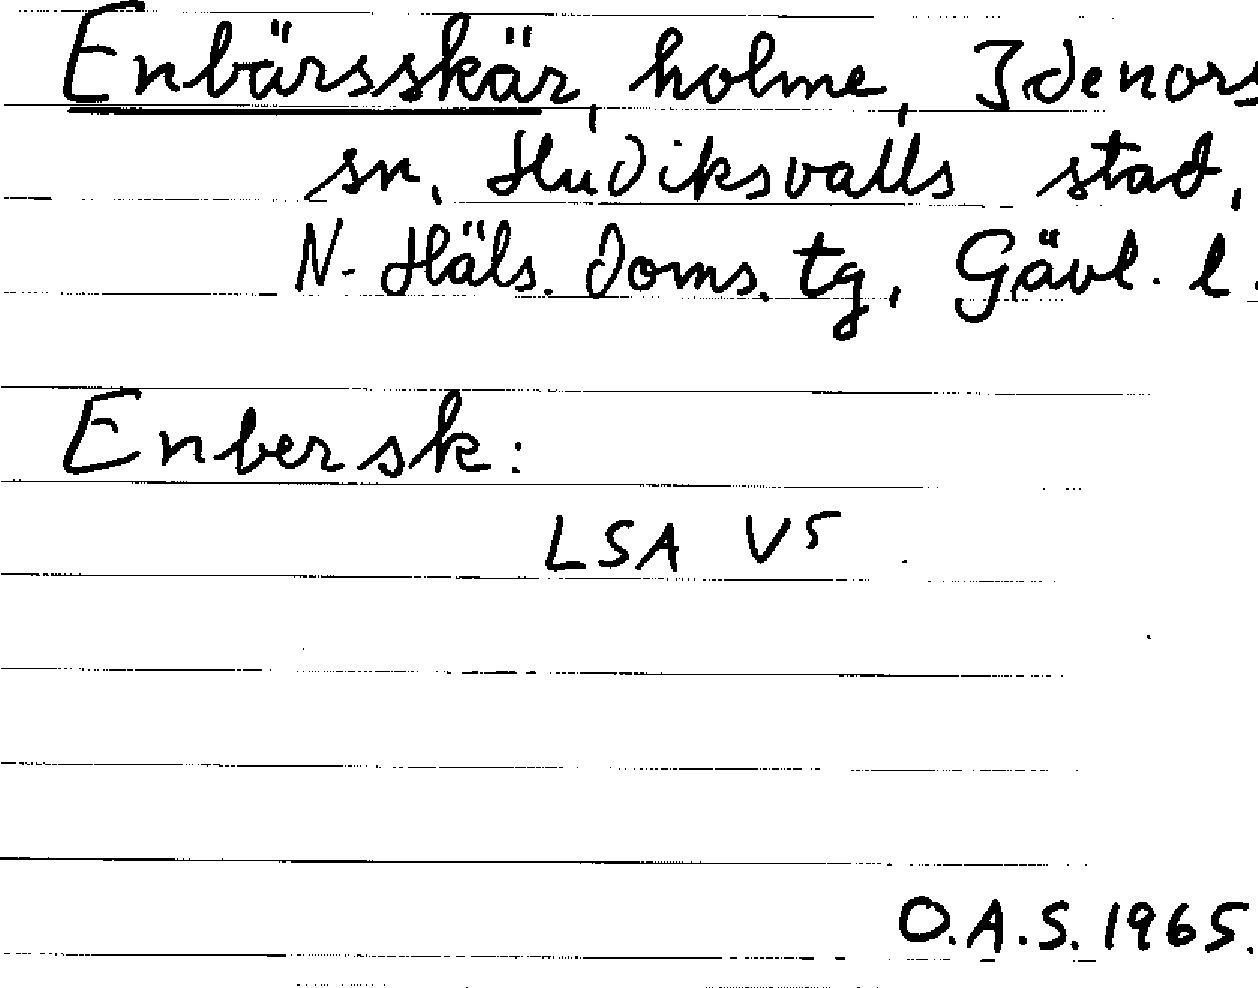 Enbärsskär, holme, Idenors
sn, Hudiksvalls stad,
N. Häls. doms. tg, Gävl. l.
Enbersk:
LSA V5
O.A.S. 1965.